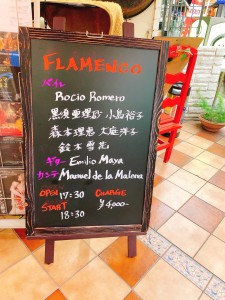 FLAMENCO
バイレ
Rocio Romero
黒須亜理紗 小島裕子
森本理恵 大庭洋子
鈴木雪花
ギター Emilio Maya
カンテ Manuel de la Malena
OPEN 17:30 CHARGE
START ¥4,000-
18:30